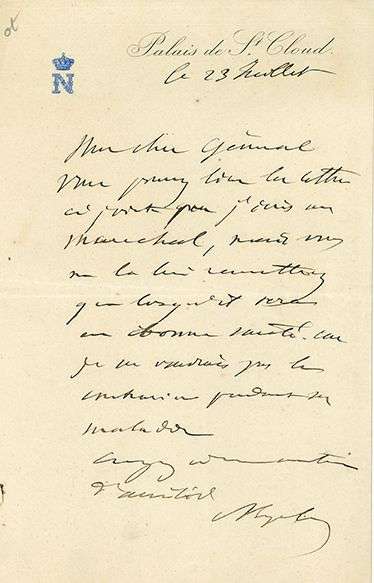 N
Palais de St Cloud.
le 23 Juillet
Mon cher Général
Vous pouvez lire la lettre
ci jointe que j'écris au
maréchal, mais vous
ne la lui remettrez
que lorsqu'il sera
en bonne santé. car
je ne voudrais pas le
contrarier pendant sa
maladie
Croyez à mes sentimens
d'amitié